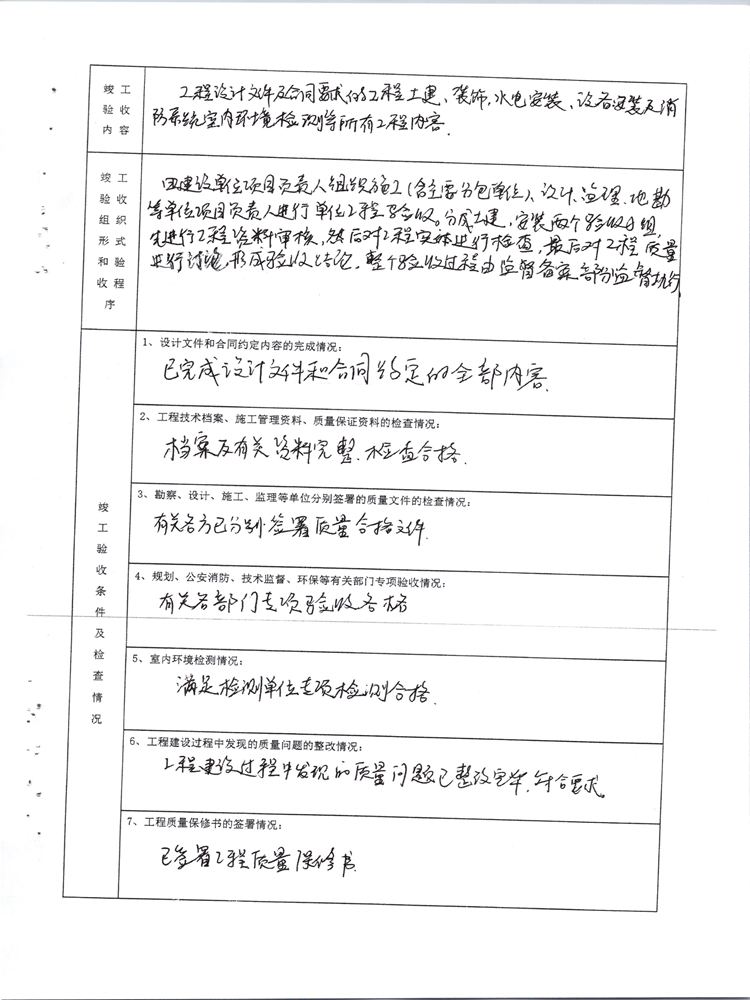 竣工
验收
内容
工程设计文件及合同要求的工程土建、装饰,水电安装、设备安装及消
防系统室内环境检测等所有工程内容.
竣工
验收
组织
形式
和验
收程
序
由建设单位项目负责人组织施工(含主要分包单位)、设计、监理、地勘
等单位项目负责人进行单位工程验收。分成土建,安装两个验收小组,
先进行工程资料审核,然后对工程实体进行检查,最后对工程质量
进行讨论,形成验收结论,整个验收过程由监督备案部份监督执行.
竣
工
验
收
条
件
及
检
查
情
况
1、设计文件和合同约定内容的完成情况:
已完成设计文件和合同约定的全部内容.
2、工程技术档案、施工管理资料、质量保证资料的检查情况:
档案及有关资料完整.检查合格.
3、勘察、设计、施工、监理等单位分别签署的质量文件的检查情况:
有关各方已分别签署质量合格文件.
4、规划、公安消防、技术监督、环保等有关部门专项验收情况:
有关各部门专项验收合格
5、室内环境检测情况:
满足检测单位专项检测合格.
6、工程建设过程中发现的质量问题的整改情况:
工程建设过程中发现的质量问题已整改完毕,符合要求。
7、工程质量保修书的签署情况:
已签署工程质量保修书.